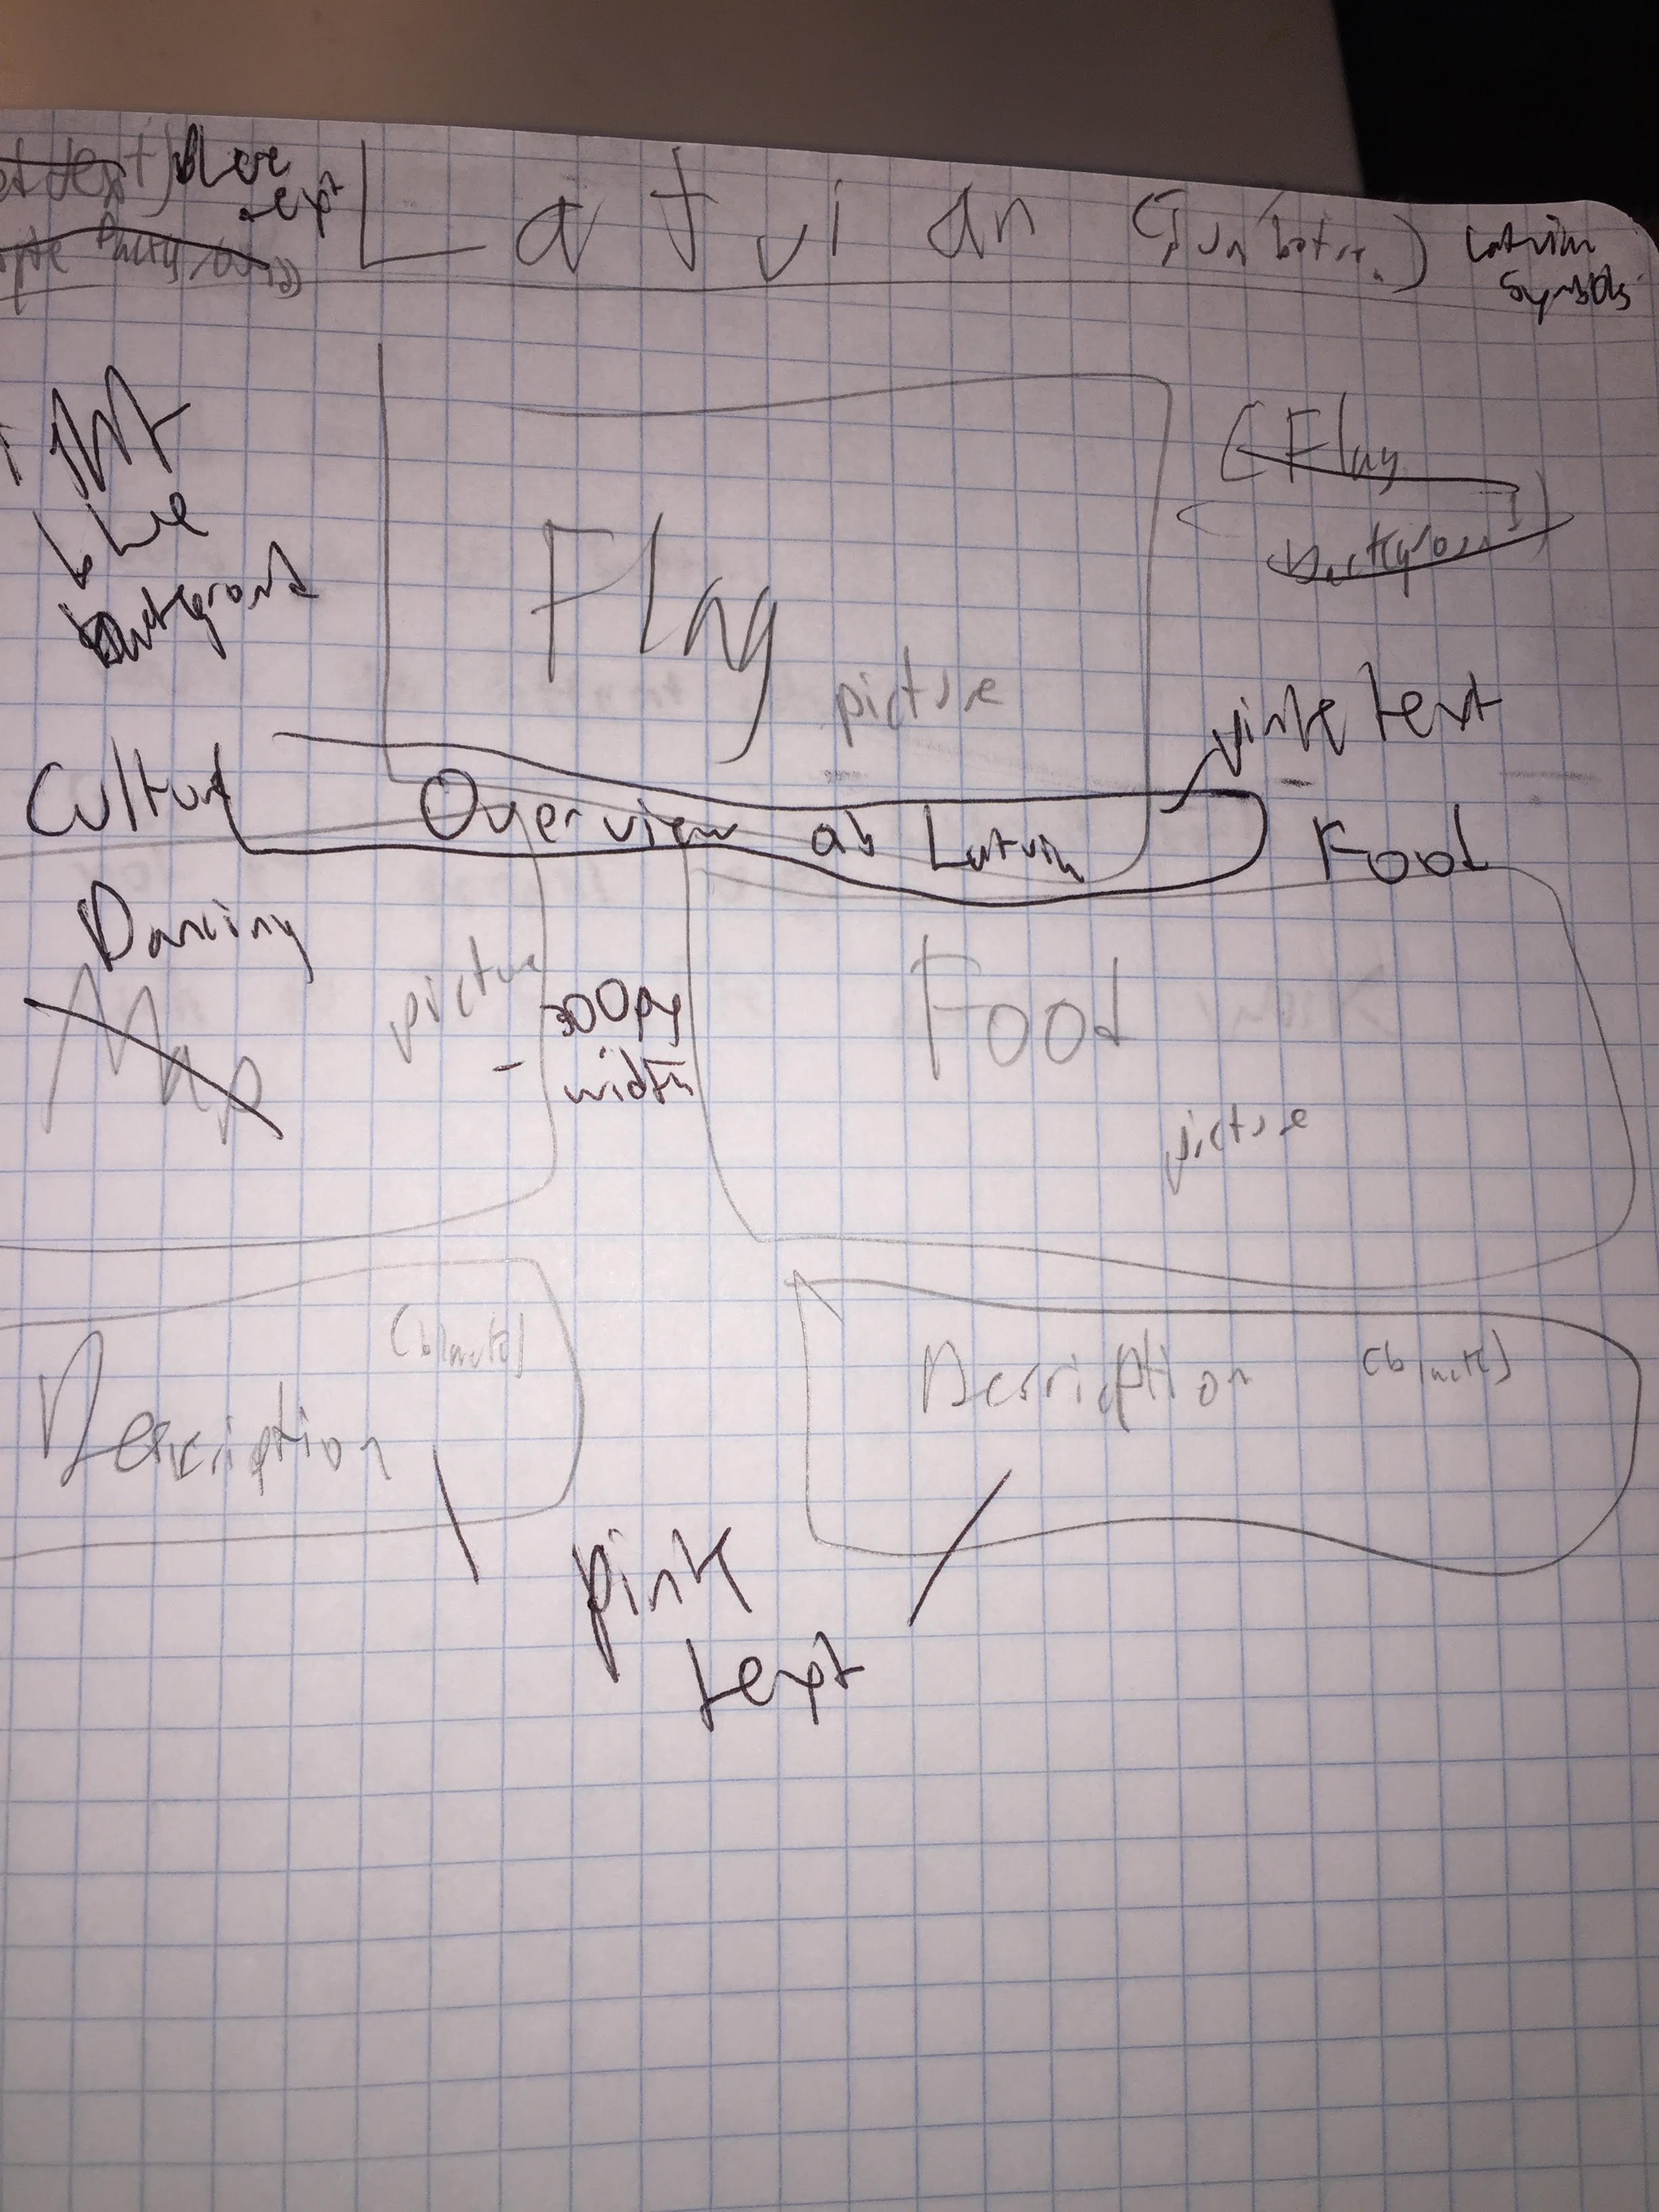 blue
text
Latvian
Latvian
Symbols
blue
background
Flag
picture
(Flag
background)
pink text
Culture
Overview ab Latvia
Food
Dancing
Map
picture
- 300px
width
Food
picture
Description (black)
Description (black)
pink
text